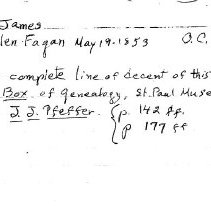 James
len Fagan May 19. 1853 O.C.
complete line of decent of this
Box of Genealogy, St. Paul Muse
J. J. Pfeffer. { p. 142 ff.
p 177 ff